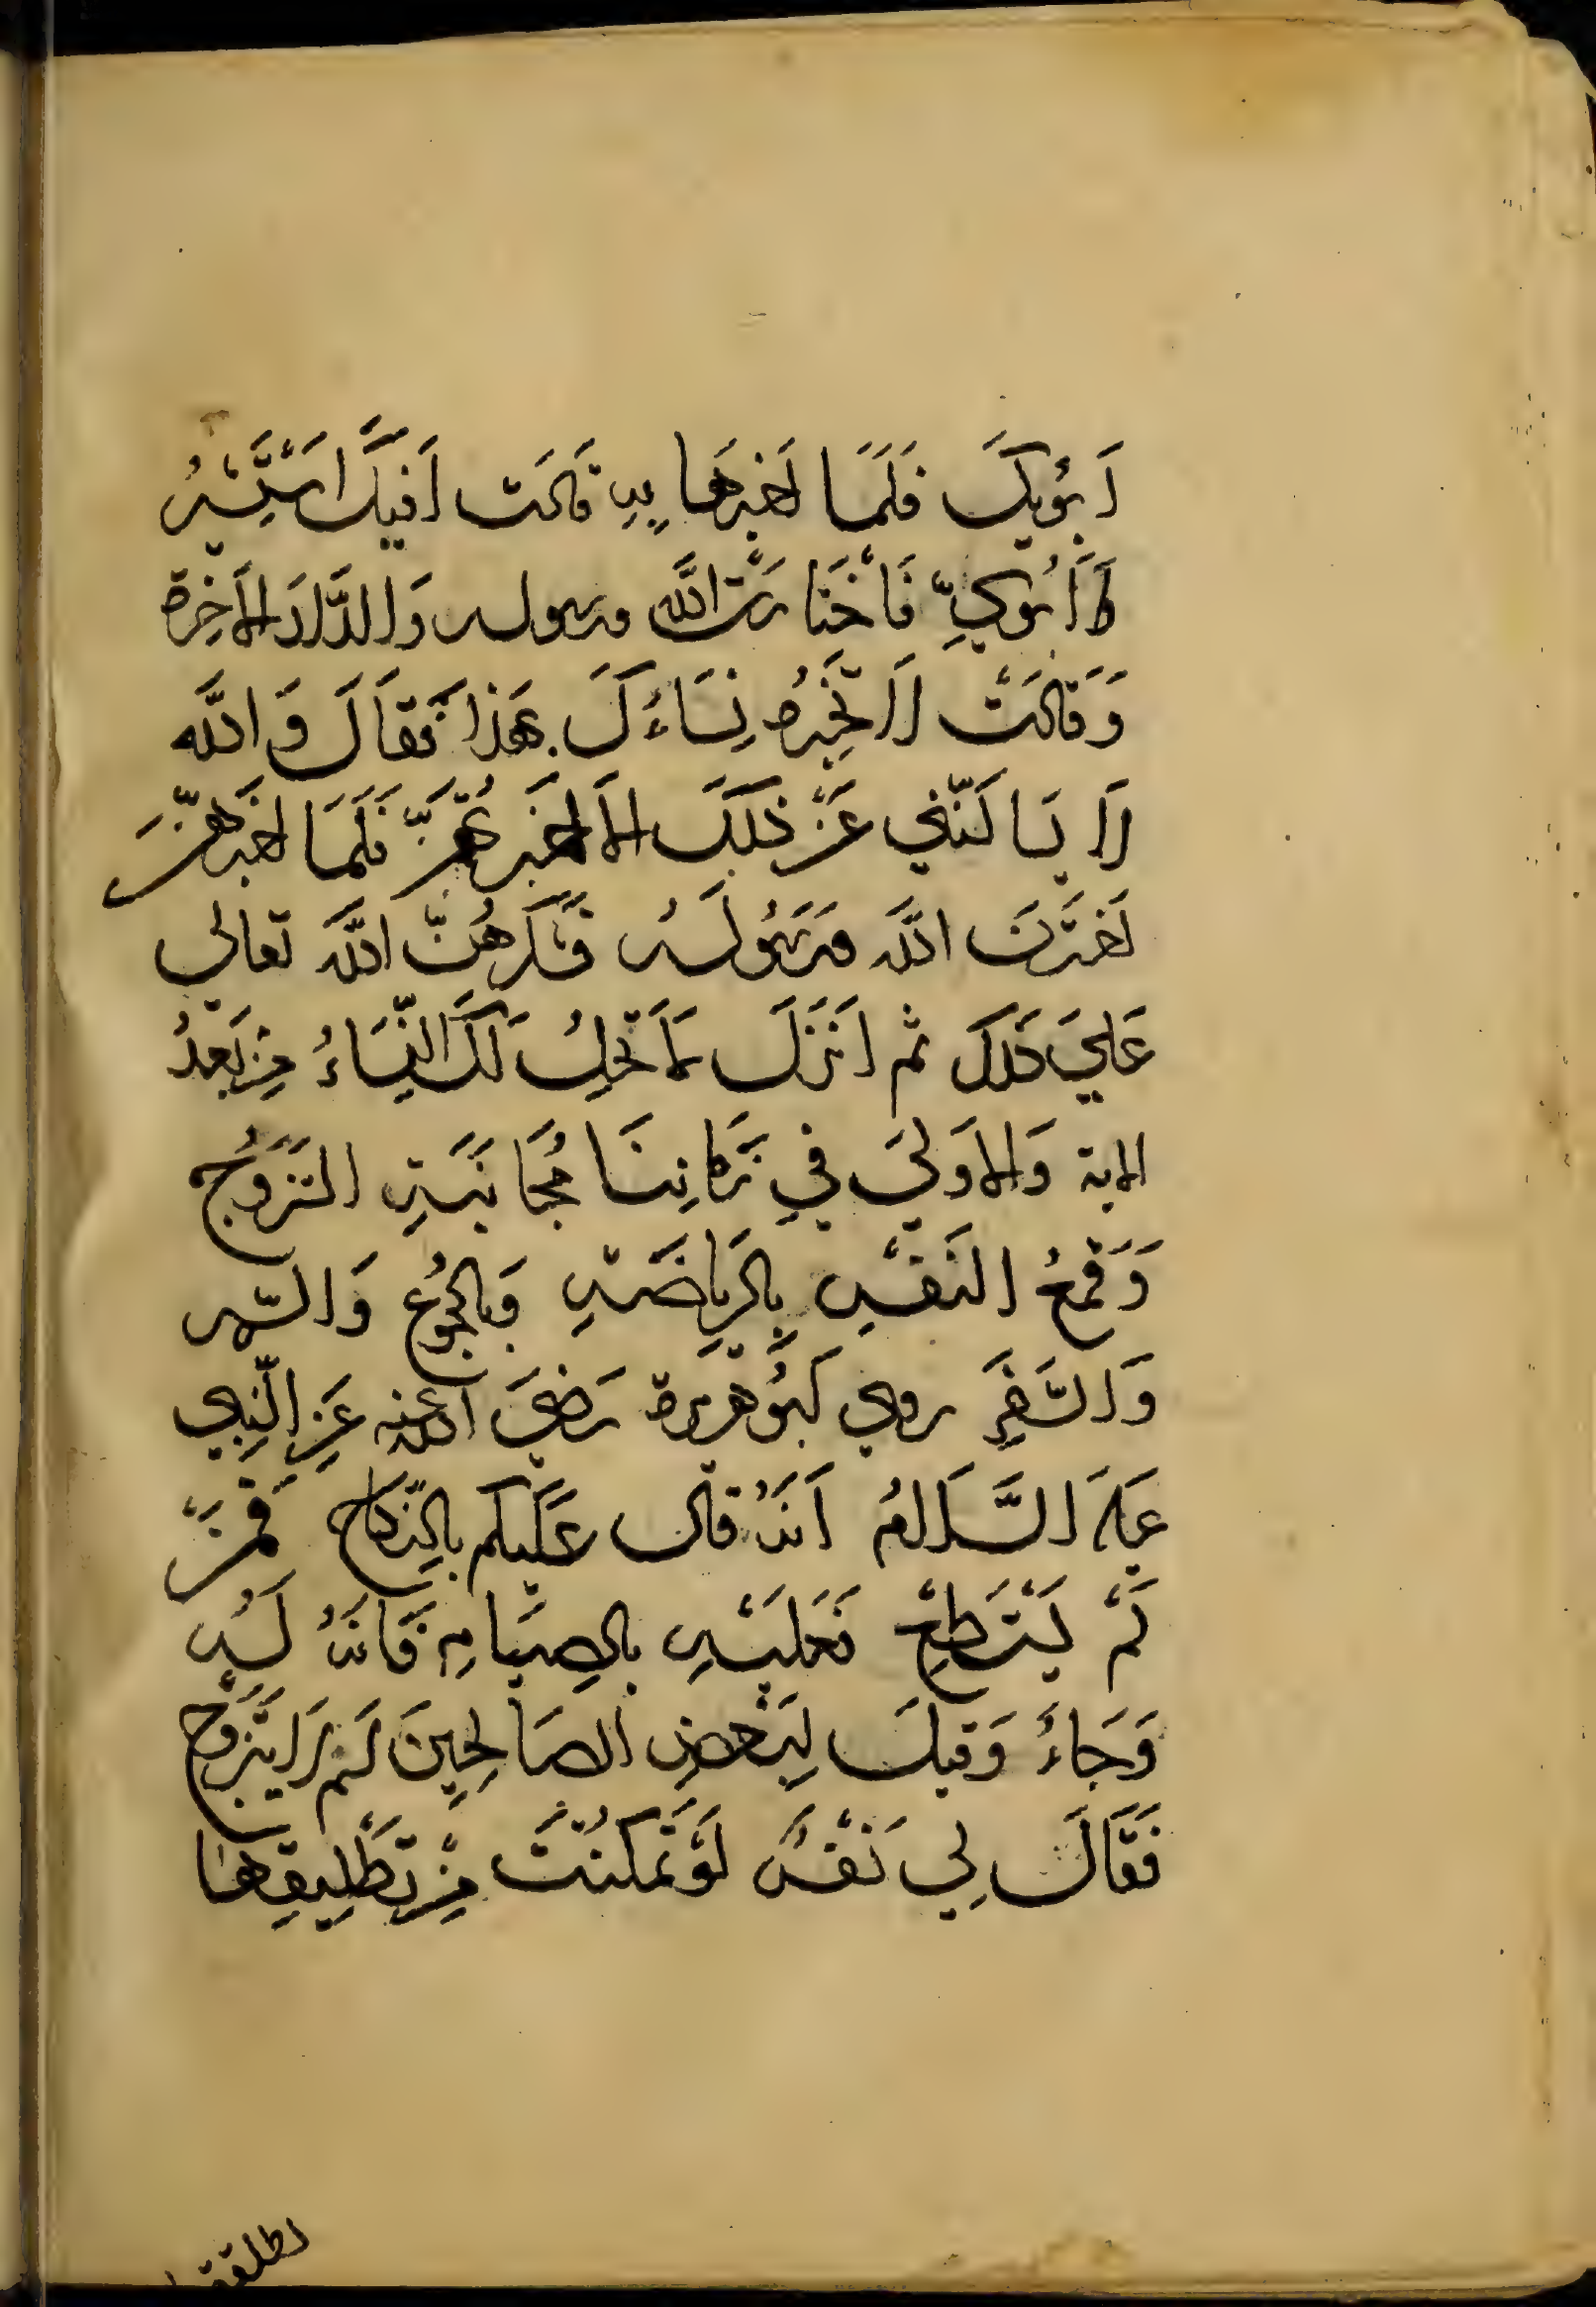 اَبَوَيكَ فَلَمَا اَخبَرهَا بِهِ قالَت اَفيكَ اَسْتَشِيْرُ
اَ اَبَوَيَّ فَأَخْتَارَتْ اللَّه ورسوله وَالدَّارَ الاَخِرَة
وَقَالَتْ لاَ تُخَيِرُه نِسَاءُكَ هَذا فَقَالَ وَاللَّه
لاَ يَسَالَنّي عَنْ ذَلِكَ الاَ اخبَرتُهُنَّ فَلَمَا اخبَرهنَّ
اَختَرنَ اللَّه وَرَسُولَهُ فَشَكَرهُنَّ اللَّهَ تعالى
عَلىَ ذَلكَ ثم اَنزَلَ لاَ تَحِلُ لَكَ النِّسَاءُ مِن بَعدُ
الاية وَالاَولىَ في زَمَانِنَا مُجَانَبَةِ التَزَوُج
وَقَمعُ النَفْسِ بِالرِيَاضَةِ وَبالجُوع وَالسّهر
وَالسَفَرِ روى اَبُو هُرَيرة رَضيَ اللّه عنه عَنِ النّبِي
عَلَيه السَّلاَمُ اَنَهُ قال عَلَيكم بِالنِّكَاح فَمَنْ
لَمْ يَسْتَطِعْ فَعَلَيْهِ بالصِيَامِ فَانَهُ لَهُ
وَجَاءٌ وَقيلَ لِبَعْضِ الصَالِحِينَ لَم لاَ يتزَوَج
فَقَالَ لي نَفْسٌ لَوْ تَمَكَنْتُ مِنْ تَطْلِيقِهَا
لطلقتها